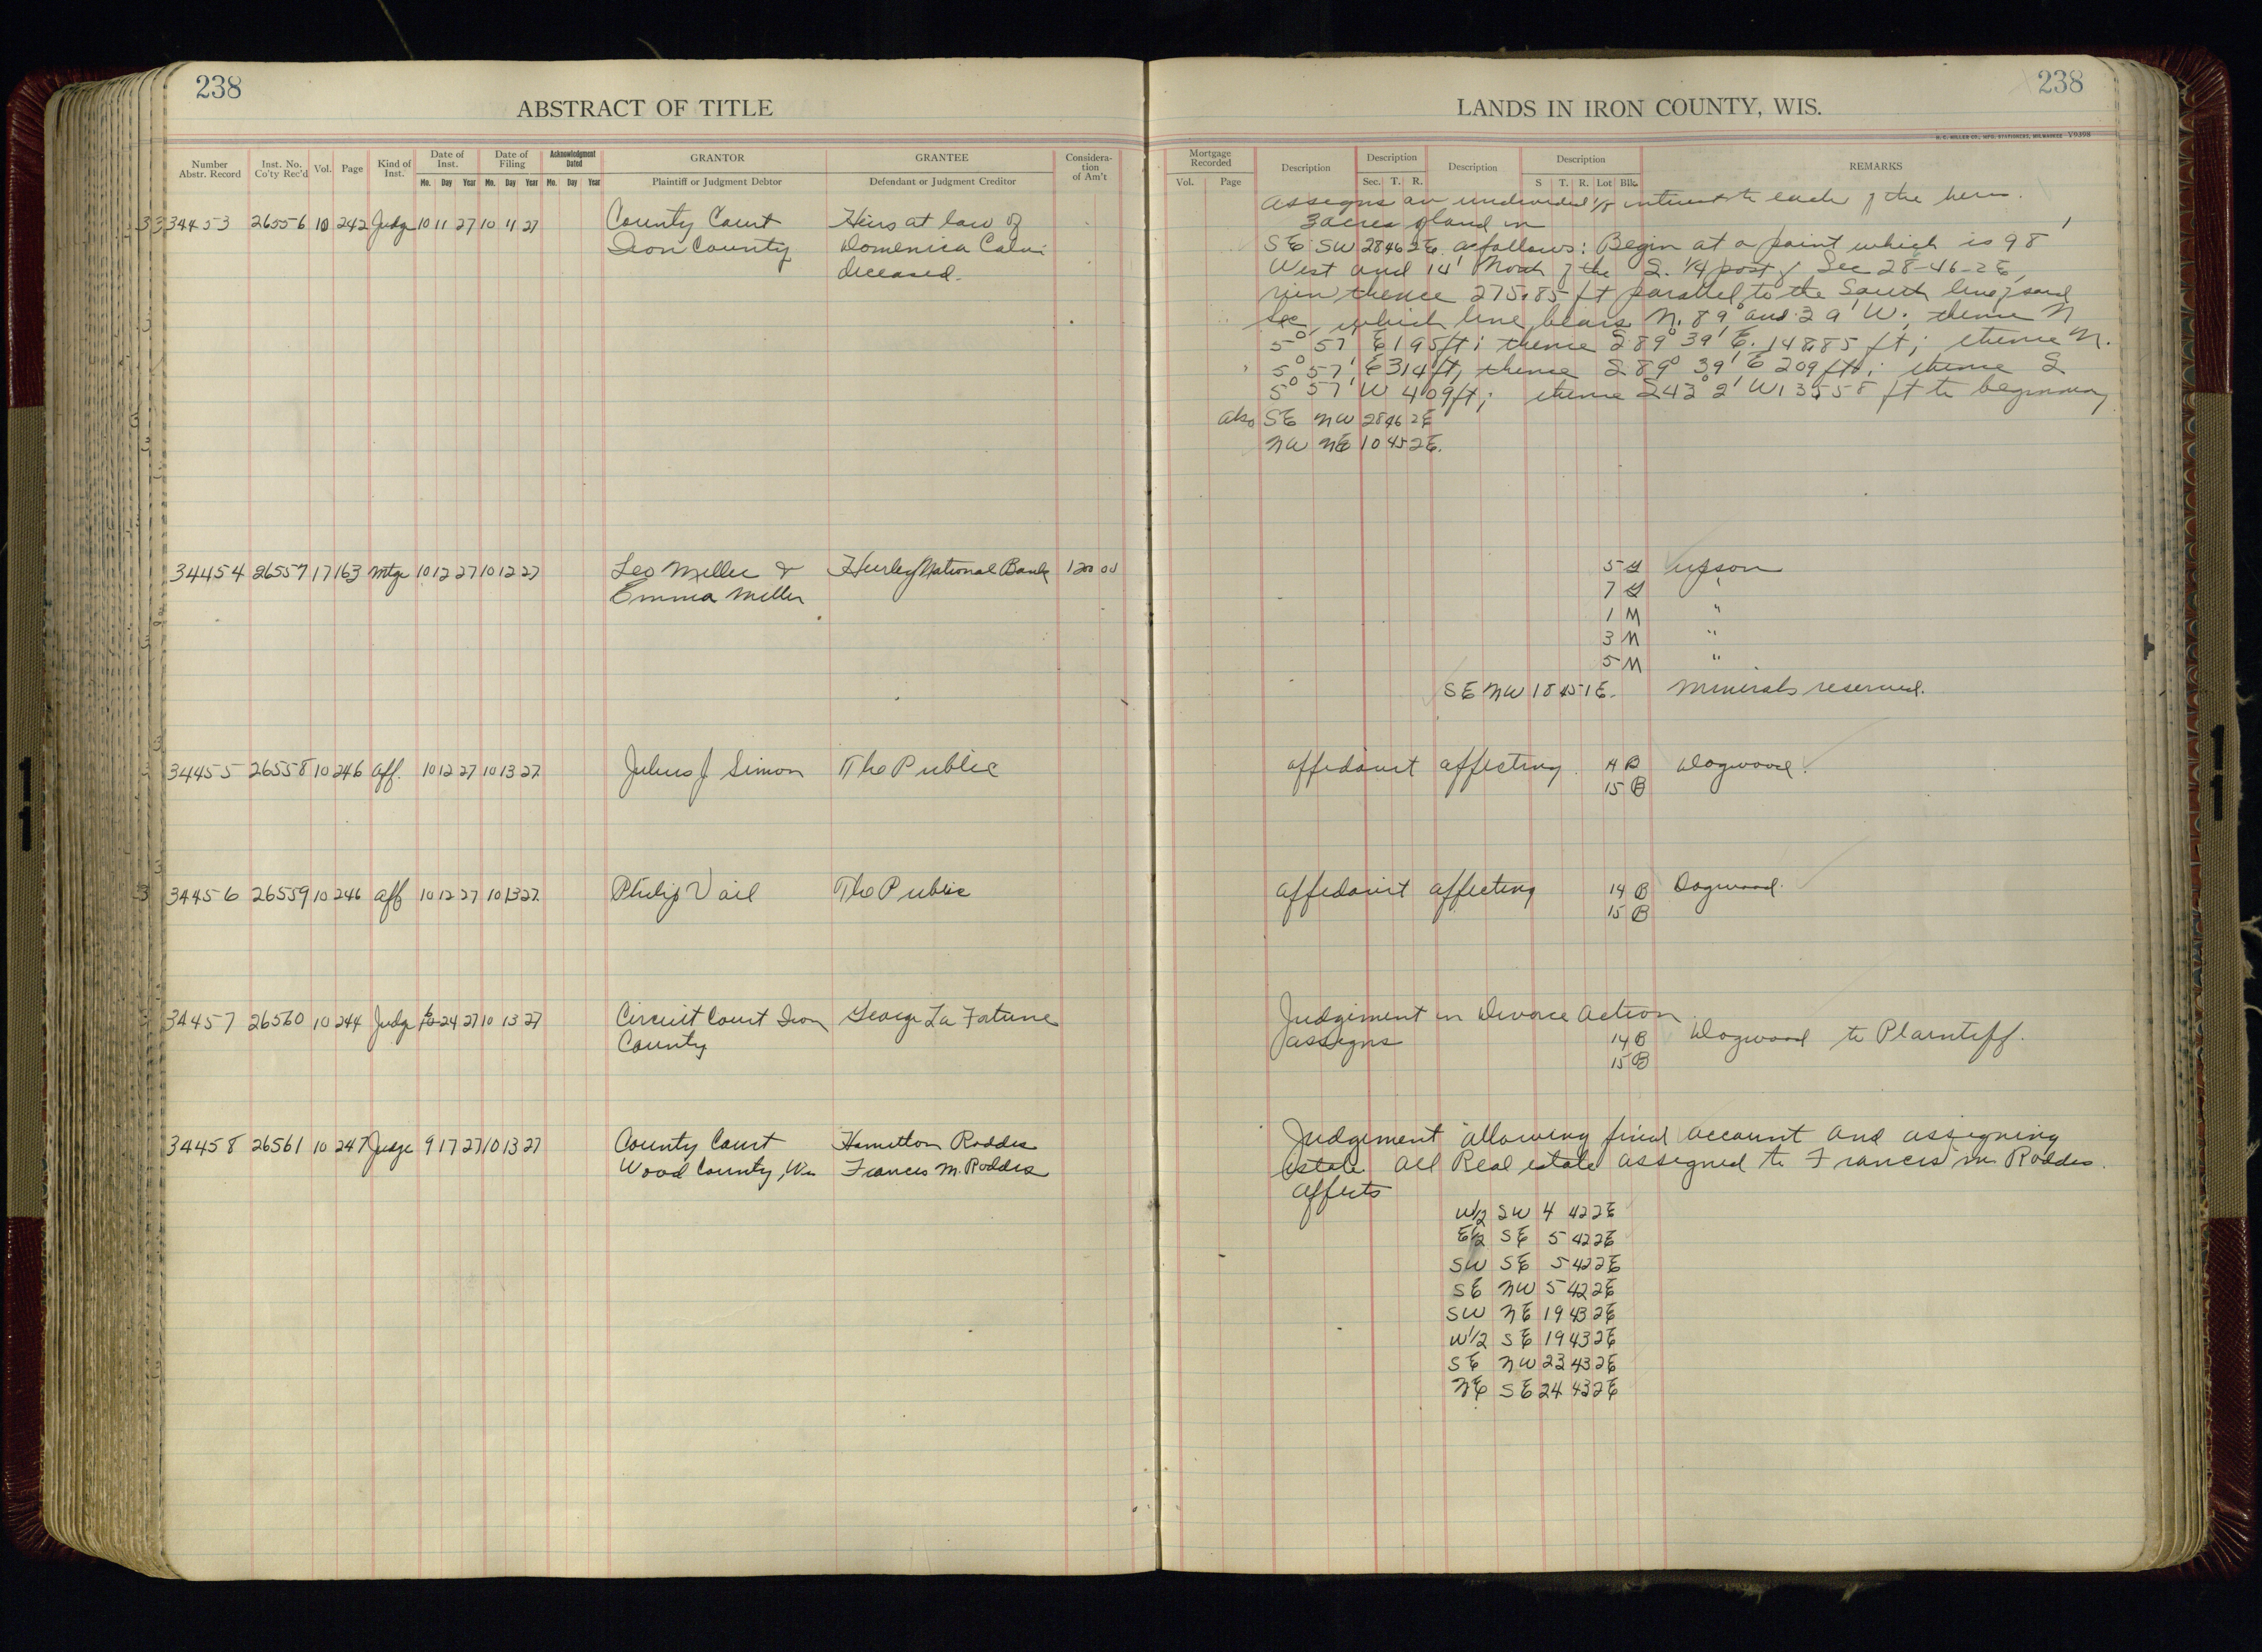 238
ABSTRACT OF TITLE
Number Abstr. Record
Inst. No. Co'ty Rec'd
Vol.
Page
Kind of Inst.
Date of Inst.
Date of Filing
Acknowledgment Dated
GRANTOR
GRANTEE
Considera-tion of Am't
Mo. Day Year Mo. Day Year Mo. Day Year
Plaintiff or Judgment Debtor
Defendant or Judgment Creditor
34453 26556 10 242 Judge 10 11 27 10 11 27 County Court Heirs at law of
Iron County Domenica Calvi
deceased.
34454 26557 17 163 Mtge 10 12 27 10 12 27 Leo Miller & Hurley National Bank 1200 00
Emma Miller
34455 26558 10 246 Aff. 10 12 27 10 13 27 Julius J Simon The Public
34456 26559 10 246 Aff 10 12 27 10 13 27 Philip Vail The Public
34457 26560 10 244 Judge 24 27 10 13 27 Circuit Court Iron George La Fortune
County
34458 26561 10 247 Judge 9 17 27 10 13 27 County Court Hamilton Roddis
Wood County, Wis Frances M. Roddis
238
LANDS IN IRON COUNTY, WIS.
H. C. MILLER CO., MFG. STATIONERS, MILWAUKEE V9398
Mortgage Recorded
Description
Description
Description
Description
REMARKS
Vol. Page Sec. T. R. S T. R. Lot Blk.
Assigns an undivided 1/8 interest to each of the heirs.
3 acres of land in
SE SW 28 46 2E as follows: Begin at a point which is 98'
West and 14' North of the S. 1/4 post of Sec 28-46-2E,
run thence 275.85 ft parallel to the South line of said
Sec, which line bears N. 89° and 39' W; thence N
5° 57' E 195 ft; thence S 89° 39' E. 148.85 ft; thence N.
5° 57' E 314 ft; thence S 89° 39' E 209 ft; thence S
5° 57' W 409 ft; thence S 43° 2' W 135.58 ft to beginning
also SE NW 28 46 2E
NW NE 10 45 2E.
5 Upson
7 "
1 M "
3 M "
5 M "
SE NW 18 45 1E. Minerals reserved.
Affidavit affecting B Dogwood.
15 B
Affidavit affecting 14 B Dogwood.
15 B
Judgement in Divorce Action
assigns 14 B Dogwood to Plaintiff.
15 B
Judgement allowing final account and assigning
estate. All Real estate assigned to Frances M Roddis.
Affects
W1/2 SW 4 42 2E
E1/2 SE 5 42 2E
SW SE 5 42 2E
SE NW 5 42 2E
SW NE 19 43 2E
W1/2 SE 19 43 2E
SE NW 23 43 2E
NE SE 24 43 2E